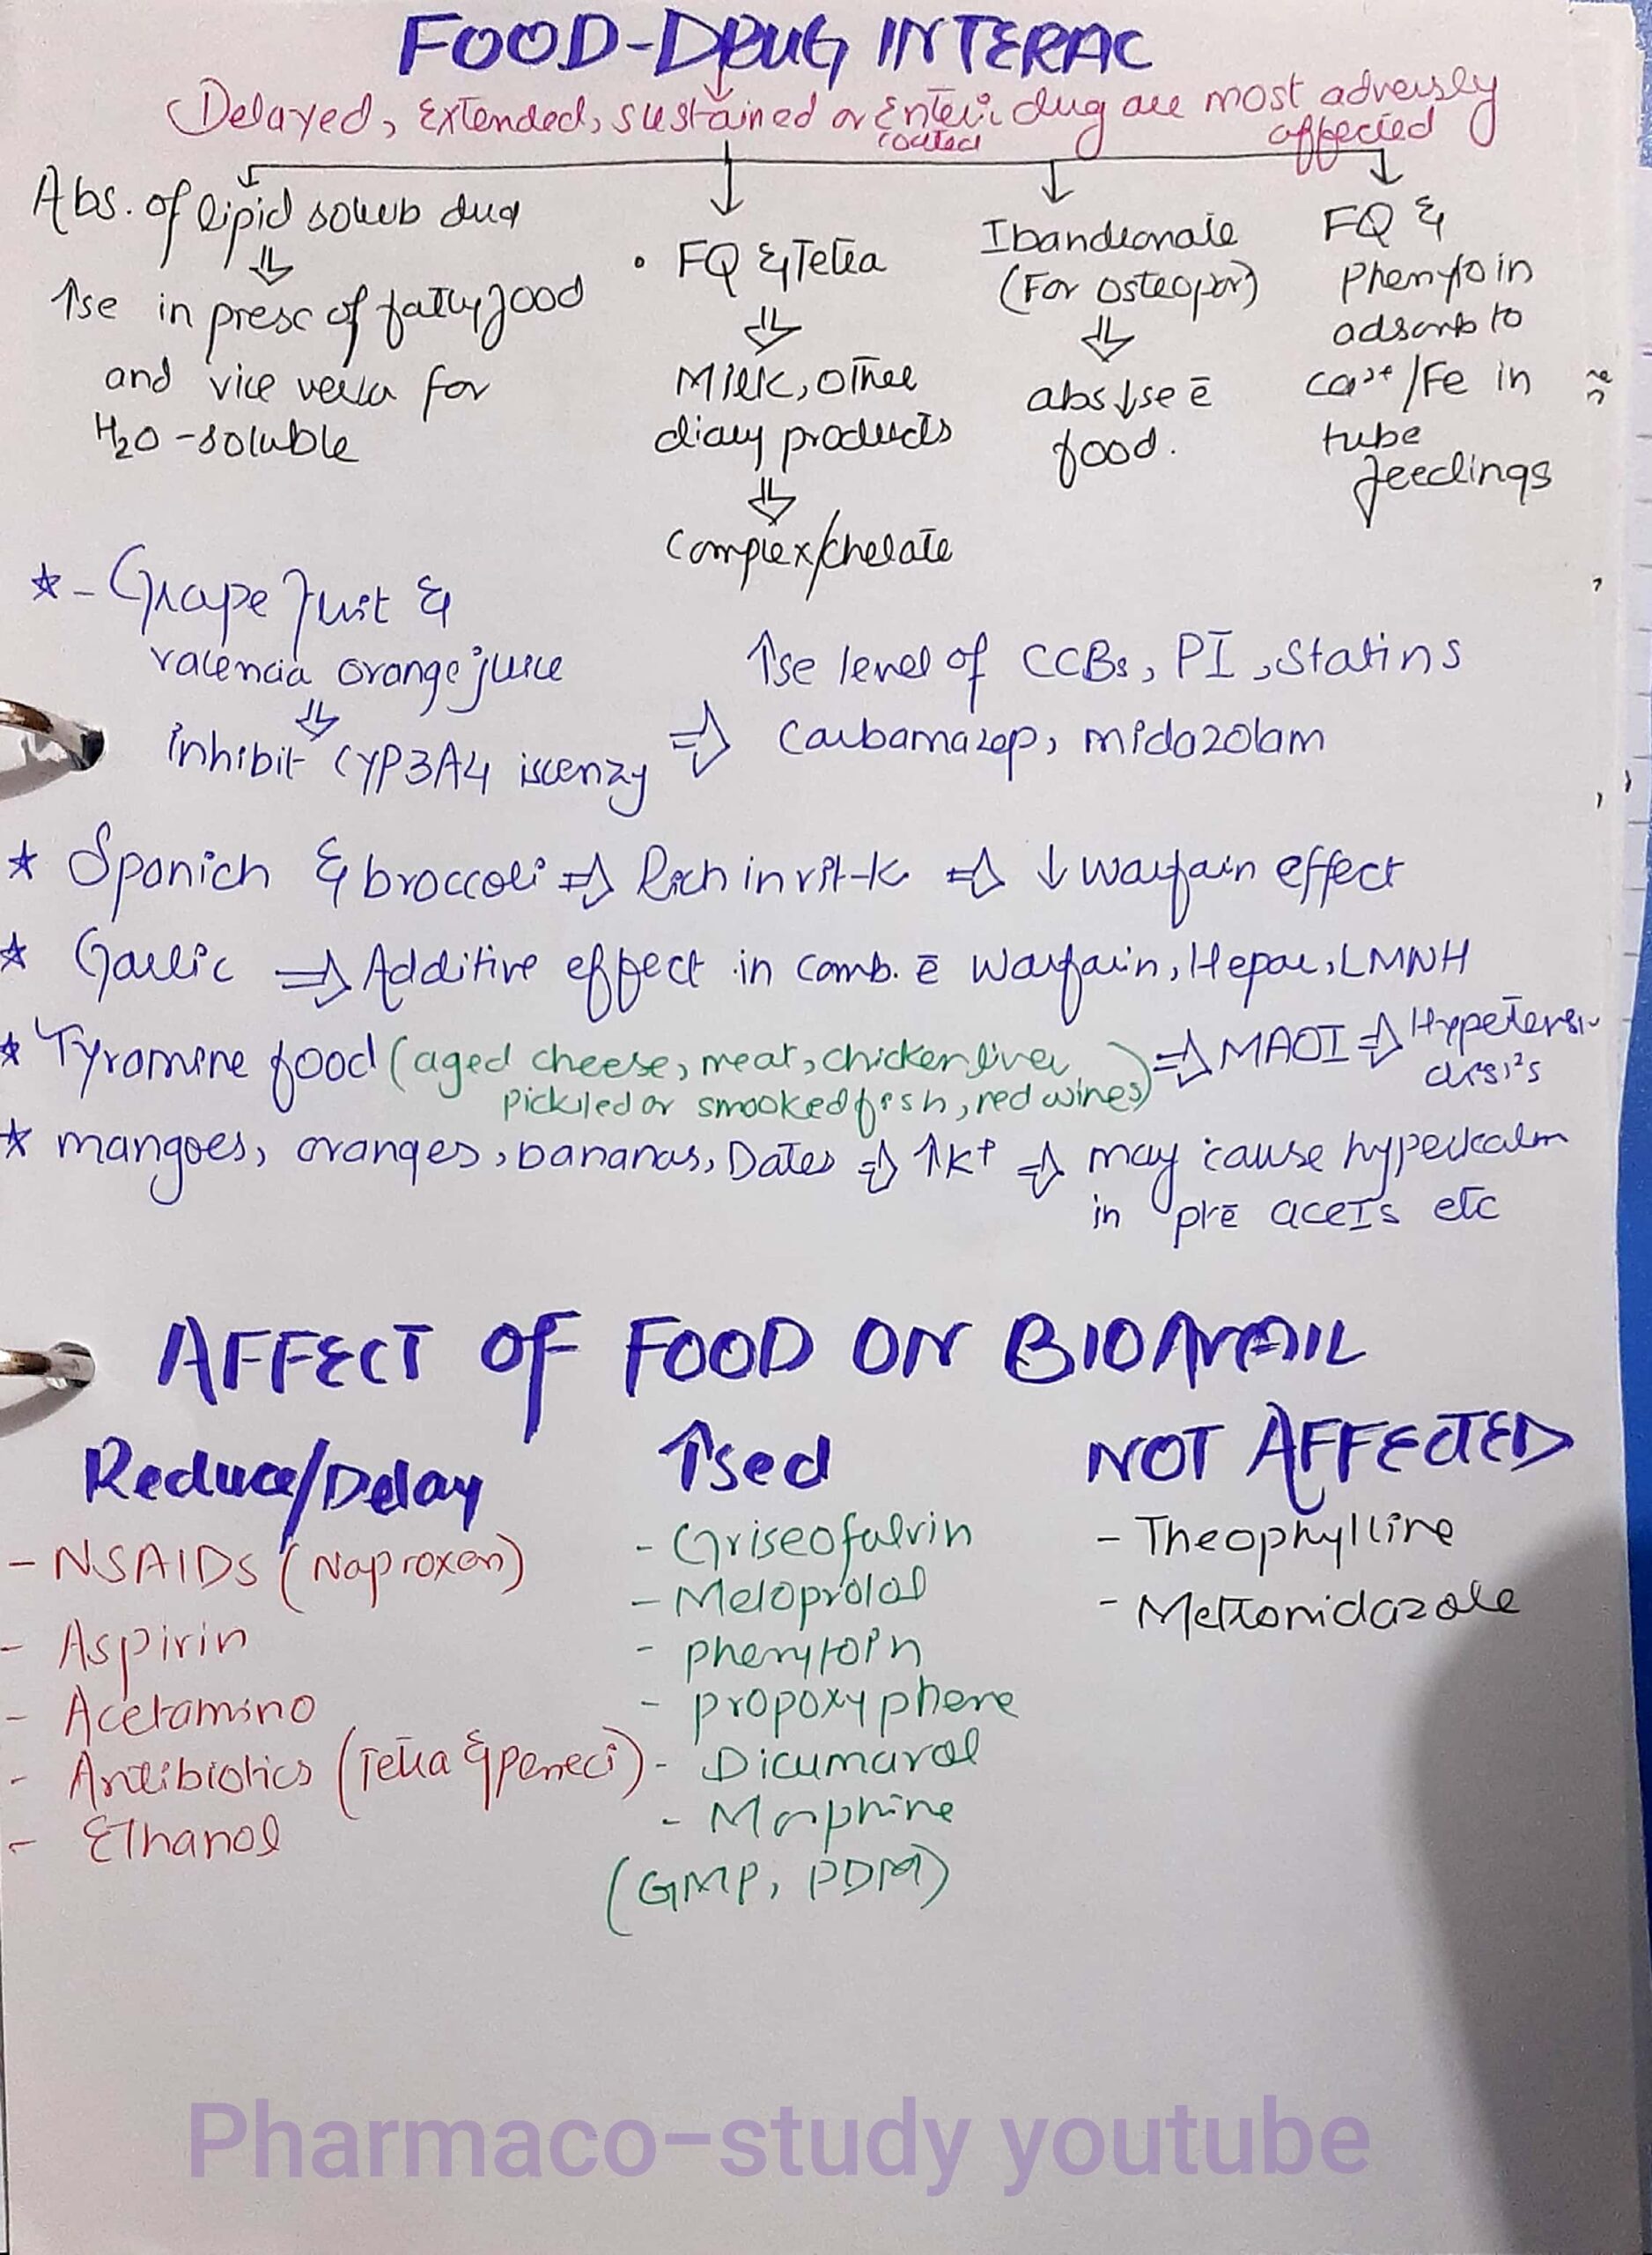 FOOD-DRUG INTERAC
Delayed, Extended, sustained or Enteric drug are most adversly
coated affected
Abs. of lipid solub drug
↑se in presc of fatty food
and vice versa for
H2O-soluble
• FQ & Tetra
Milk, other
diary products
Complex/chelate
Ibandronate
(For osteopor)
abs↓se c̄
food.
FQ &
Phenytoin
adsorb to
Ca2+/Fe in
tube
feedings
★ - Grape fruit &
valencia orange juice
⇓
inhibit CYP3A4 isoenzy ⇒
↑se level of CCBs, PI, Statins
Carbamazep, midazolam
★ Spanich & broccoli ⇒ Rich in vit-K ⇒ ↓ Warfarin effect
★ Garlic ⇒ Additive effect in comb. c̄ warfarin, Hepar, LMNH
★ Tyromine food (aged cheese, meat, chicken liver ⇒ MAOI ⇒ Hypetensi
pickled or smooked fish, red wines) crisi's
★ mangoes, oranges, bananas, Dates ⇒ ↑K+ ⇒ may cause hyperkalm
in ptc̄ aceIs etc
AFFECT OF FOOD ON BIOAVAIL
Reduce/Delay
- NSAIDs (Naproxen)
- Aspirin
- Acetamino
- Antibiotics (Tetra & peneci)
- Ethanol
↑sed
- Griseofulvin
- Metoprolol
- phenytoin
- propoxyphene
- Dicumarol
- Morphine
(GMP, PDM)
NOT AFFECTED
- Theophylline
- Metronidazole
Pharmaco-study youtube